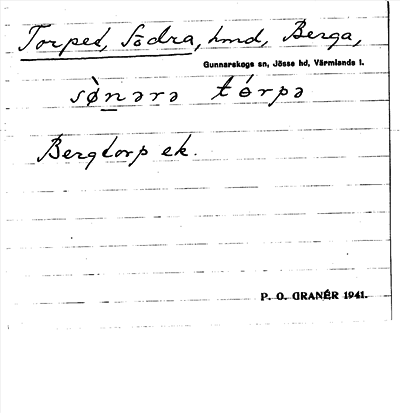 Torpet, Södra, hmd, Berga,
Gunnarskogs sn, Jösse hd, Värmlands l.
sø̀nərə tórpə
Bergtorp ek.
P. O. GRANÉR 1941.